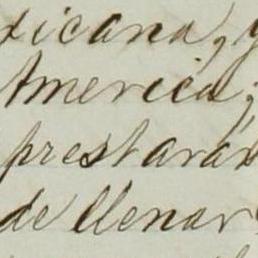 xicana, y
America;
prestarán
de llenar